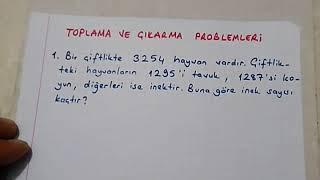 TOPLAMA VE ÇIKARMA PROBLEMLERİ
1. Bir çiftlikte 3254 hayvan vardır. Çiftlik-
teki hayvanların 1295'i tavuk, 1287'si ko-
yun, diğerleri ise inektir. Buna göre inek sayısı
kaçtır?